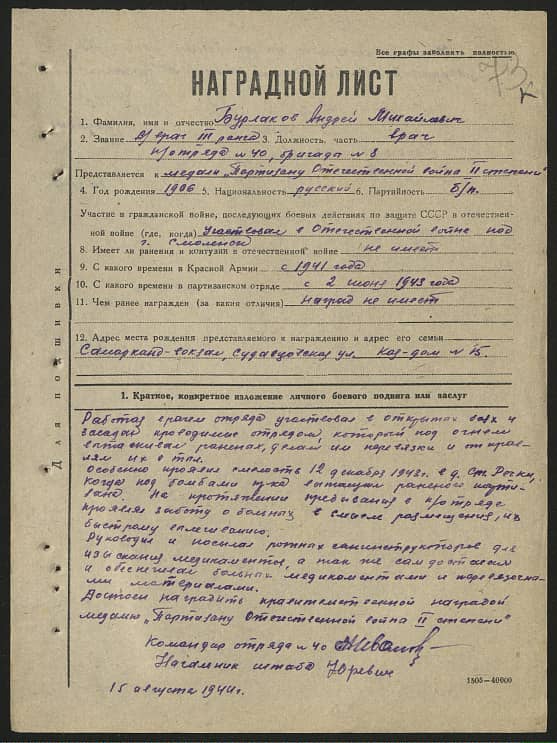 Все графы заполнять полностью.
НАГРАДНОЙ ЛИСТ
1. Фамилия, имя и отчество Бурлаков Андрей Михайлович
2. Звание в/врач III ранга 3. Должность, часть врач
п/отряда №40, бригада №8
Представляется к медали „Партизану Отечественной война II степени"
4. Год рождения 1906 5. Национальность русский 6. Партийность б/п.
Участие в гражданской войне, последующих боевых действиях по защите СССР в отечествен-
ной войне (где, когда) Участвовал в Отечественной войне под
г. Смоленск
8. Имеет ли ранения и контузии в отечественной войне не имеет
9. С какого времени в Красной Армии с 1941 года
10. С какого времени в партизанском отряде с 2 июня 1943 года
11. Чем ранее награжден (за какия отличия) наград не имеет
12. Адрес места рождения представляемого к награждению и адрес его семьи
Самарканд-вокзал, ул. дом №15.
Для подшивки
1. Краткое, конкретное изложение личного боевого подвига или заслуг
Работая врачем отряда участвовал в открытах боях и
засадах проводимые отрядом, который под огнем
вытаскивал раненах, делал им перевязки и отправ-
лял их в тыл.
Особенно проявил смелость 12 декабря 1943г. в д.
когда под бомбами вытащил раненой парти-
зано. На протяжении пребывания в п/отряде
проявлял заботу о больнах в смысле размещения, их
быстрому
Руководил и посылал ротнах санинструкторов для
изыскания медикаментов, а так же сам доставал
и обеспечивал больнах медикаментами и перевязочна-
ми материалами.
Достоен наградить правительственной наградой
медалю „Партизану Отечественной война II степени"
Командир отряда №40
Начальник штаба Юревич
15 августа 1944г.
1505—40000